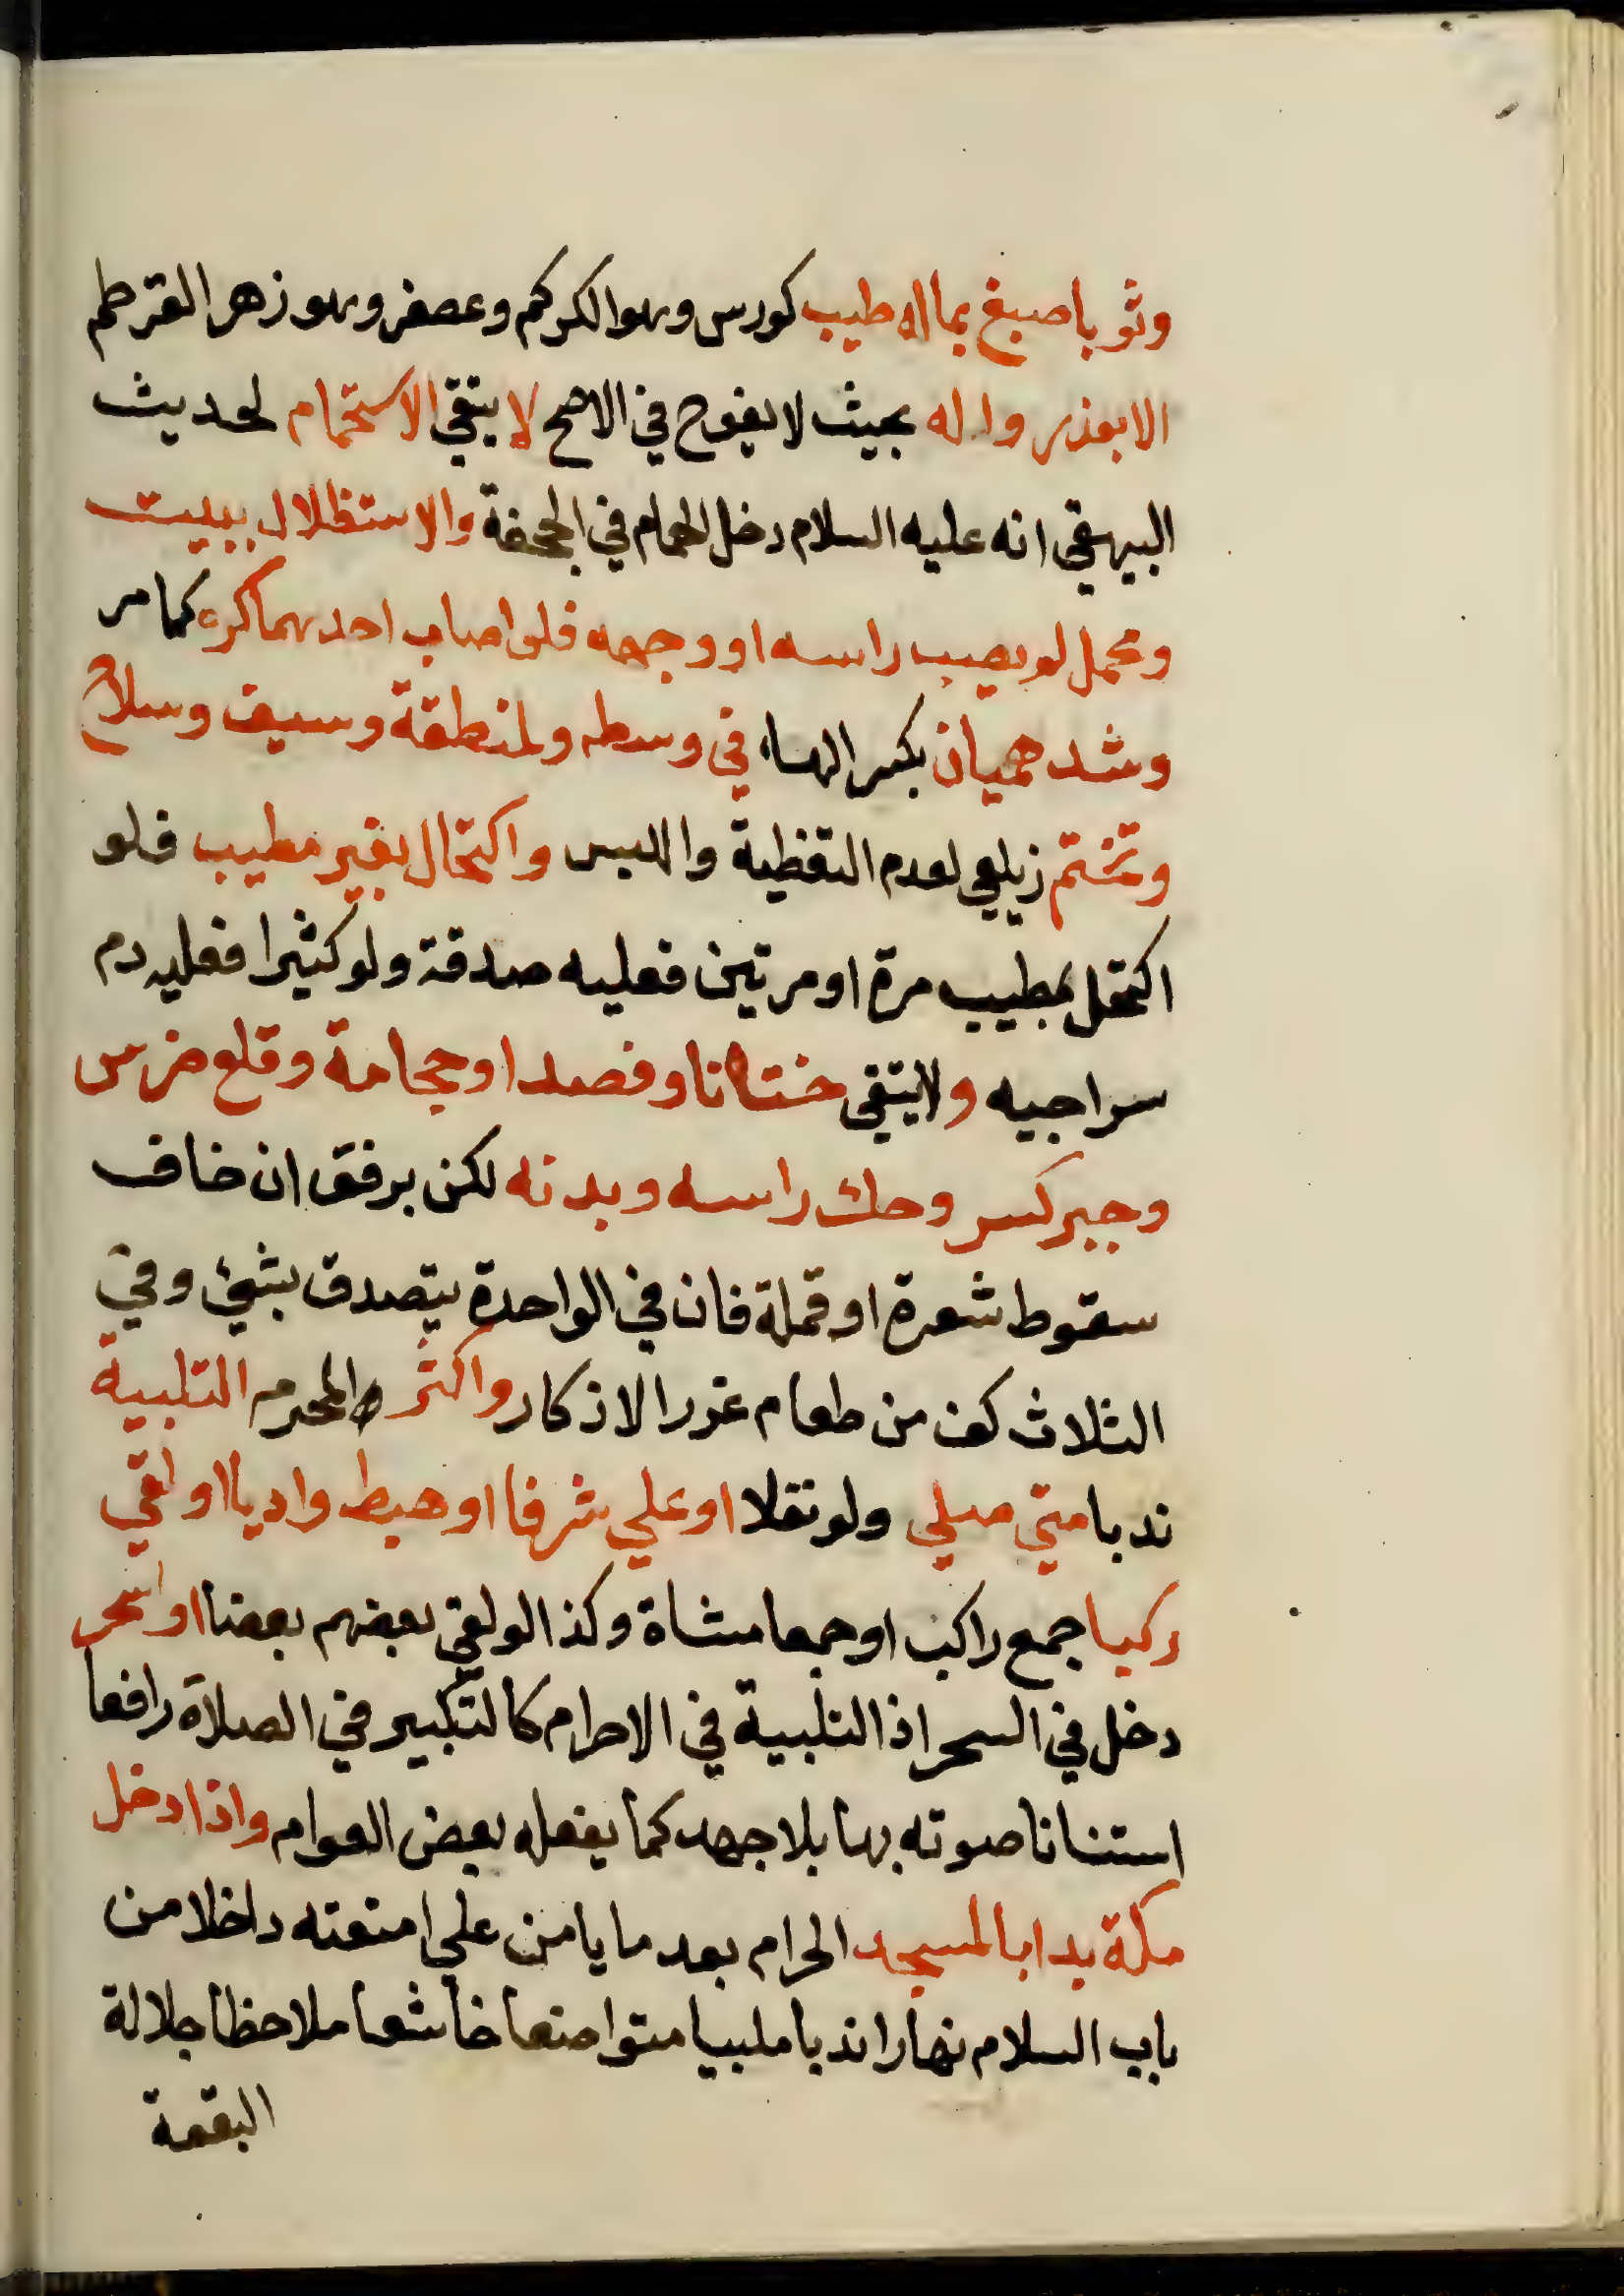 وثوبا صبغ بماله طيب كورس وهو الكركم وعصفر وهو زهر القرطم
الا بعد زواله بحيث لا يفوح في الاصح لا يتقي الاستحمام لحديث
البيهقي انه عليه السلام دخل الحمام في الجحفة والاستظلال ببيت
ومحمل لو يصيب راسه او وجهه فلو اصاب احدهما كره كما مر
وشد هميان بكسر الهاء في وسطه ومنطقة وسيف وسلاح
وتختم زيلعي لعدم التغطية واللبس واكتحال بغير مطيب فلو
اكتحل بمطيب مرة او مرتين فعليه صدقة ولو كثيرا فعليه دم
سراجيه ولا يتقي ختانا وفصدا وحجامة وقلع ضرس
وجبر كسر وحك راسه وبدنه لكن برفق ان خاف
سقوط شعرة او قملة فان في الواحدة يتصدق بشئ وفي
الثلاث كف من طعام غرر الاذكار واكثر المحرم التلبية
ندبا متي صلي ولو نفلا او علي شرفا او هبط واديا او لقي
ركبا جمع راكب او جمعا مشاة وكذا لو لقي بعضهم بعضا او اسحر
دخل في السحر اذ التلبية في الاحرام كالتكبير في الصلاة رافعا
استنانا صوته بها بلا جهد كما يفعله بعض العوام واذا دخل
مكة بدا بالمسجد الحرام بعد ما يامن علي امتعته داخلا من
باب السلام نهارا ندبا ملبيا متواضعا خاشعا ملاحظا جلالة
البقعة